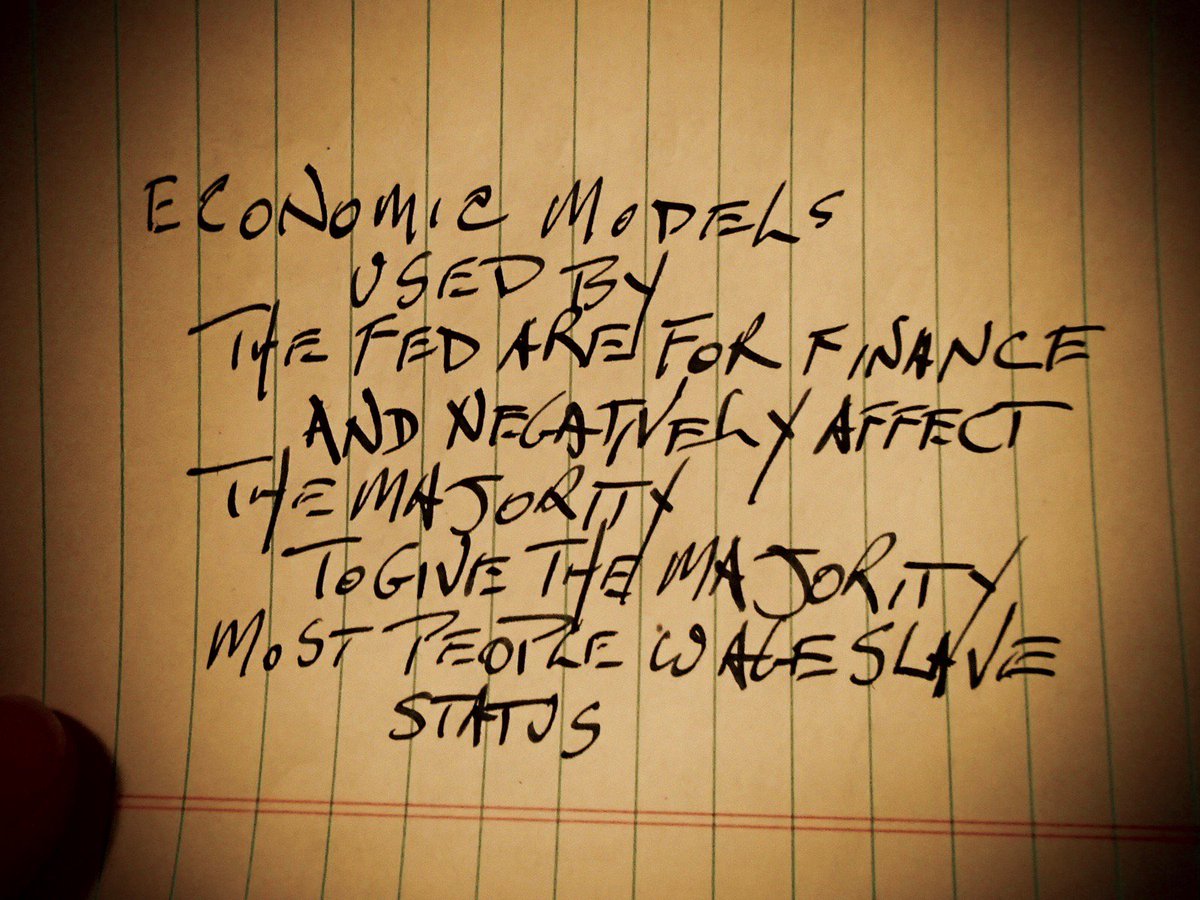 ECONOMIC MODELS
USED BY
THE FED ARE FOR FINANCE
AND NEGATIVELY AFFECT
THE MAJORITY
TO GIVE THE MAJORITY
MOST PEOPLE WAGE SLAVE
STATUS